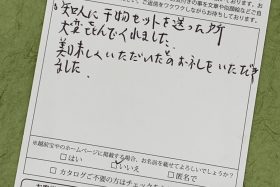 ご返信をワクワクしながらお待ちしております。
知人に干物セットを送った所
大変よろこんでくれました、
美味しくいただいたとのお礼をいただき
ました。
※越前宝やのホームページに掲載する場合、お名前を載せてよろしいでしょうか?
□はい □いいえ □匿名で
□カタログご不要の方はチェックを